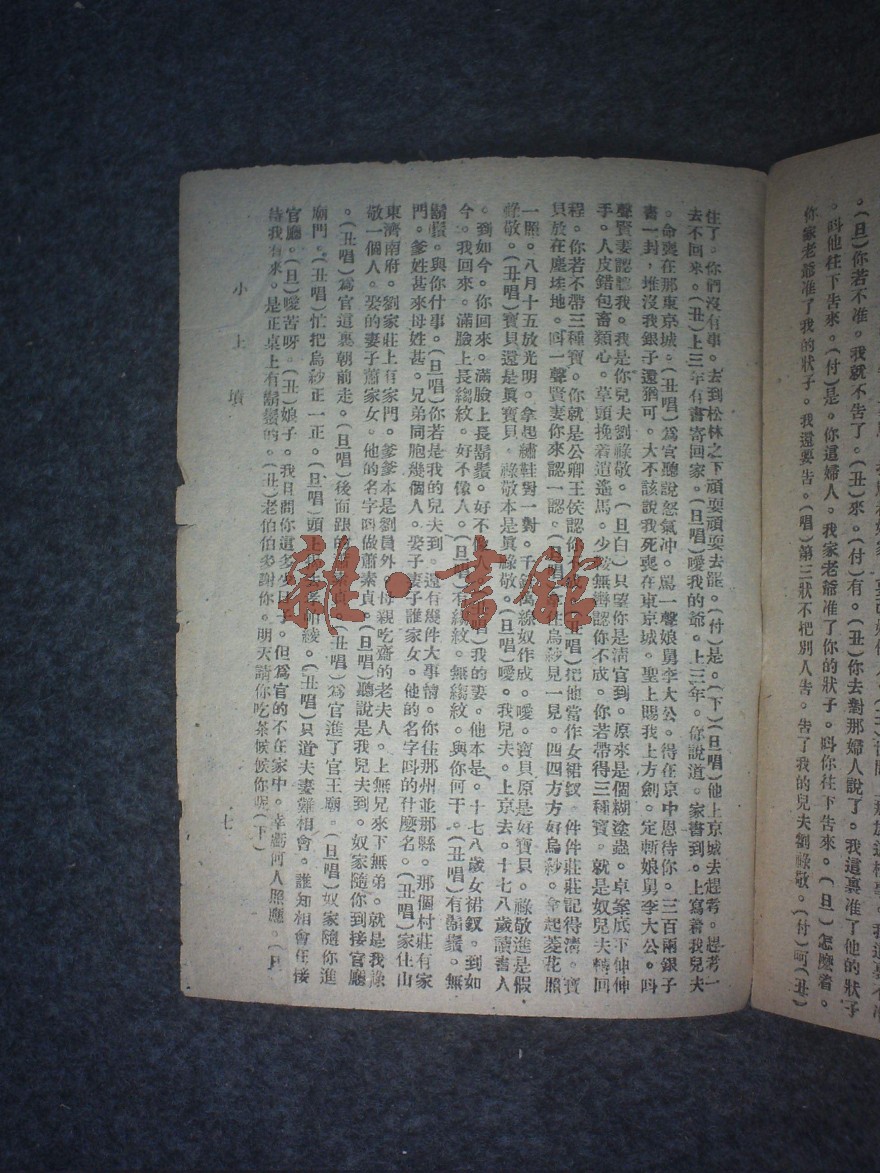 。(旦)你若不准。我就不告了。(丑)來。(付)有。(丑)你去對那婦人說了。我這裏准了他的狀子
。叫他往下告來。(付)是。你這婦人。我家老爺准了你的狀子。叫你往下告來。(旦)怎麼着。
你家老爺准了我的狀子。我還要告。(唱)第三狀不把別人告。告了我的兒夫劉祿敬。(付)呵(丑)
住了。你們沒有事。去到松林之下頑耍頑耍去罷。(付)是。(下)(旦唱)他上京城去趕考。趕考一
去不回來。(丑)上三年有書寄回家。(旦唱)噯我的爺。上三年。你說道。家書到。上寫着我兒夫
。命喪在那東京城。(丑唱)爲官聽說怒氣冲。罵一聲娘舅李大公。待在京中恩待你。三百兩銀子
書一封，堆沒我銀子還猶可。大不該說我死喪在東京城。聖上賜我上方劍。定斬娘舅李大公。叫
聲賢妻認認我。我是你兒夫劉祿敬。(旦白)只望你是淸官到。原來是個糊塗蟲。卓案底下伸伸
手。人皮錯包畜類心。草頭挽着逍遙馬。少鞍無轡認你不成。你若帶得三種寶。就是奴兒夫轉回
程。你若不帶三種寶。你就是公卿王侯認你不成。(丑唱)把他當作女裙釵。件件莊莊記得淸。寶
貝放在塵埃地。叫一聲賢妻你來認一認。(旦唱)拿住烏紗見一見。四四方方好烏紗。拿起菱花照
一照。八月十五放光明。拿起繡鞋對一對。千針萬線奴作成。噯。寶貝原是好寶貝。祿敬進是假
祿敬。(丑唱)寶貝還是眞寶貝。祿敬本是眞祿敬。(旦唱)噯。我兒夫。上京去。十七八歲讀書人
。到如今。你回來。滿臉上長鬍鬚。好不像人。(丑唱)我的妻。他本是。十七八歲女裙釵。到如
今。我回來。滿臉上長縐紋。好不像人。(旦唱)有縐紋。無縐紋。與你何干。(丑唱)有鬍鬚。無
鬍鬚。與你什事。(旦唱)你若是我的兒夫到。還有幾件大事情。你住那州並那縣。那個村莊有家
門。爹姓甚來母姓甚。兄弟同胞幾個人。娶子妻子誰家女。他的名字叫的什麼名。(丑唱)家住山
東濟南府。劉家莊上有家門。爹爹本是劉員外。母親吃齋的老夫人。上無兄來下無弟。就是我祿
敬一個人。娶的妻子蕭家女。他的名字叫做蕭素貞。(旦唱)聽說是我兒夫到。奴家隨你到接官廳
。(丑唱)爲官這裏朝前走。(旦唱)後面跟的蕭素貞。(丑唱)爲官進了官王廟。(旦唱)奴家隨你進
廟門。(丑唱)忙把烏紗正一正。(旦唱)頭上扯去孝布綾。(丑唱)只道夫妻難相會。誰知相會在接
官廳。(旦)噯苦呀。(丑)娘子。我且問你這多少日子。但爲官的不在家中。幸虧何人照應。(旦
待我看來。是正桌上有鬍鬚的。(丑)老伯伯多謝你。明天請你吃茶候候你呢(下)
小上墳
七
雜·書館